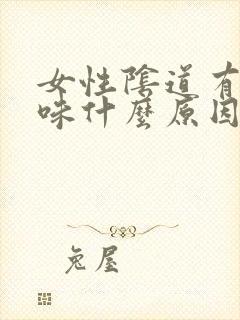 女性陰道有
味什麼原因
兔屋